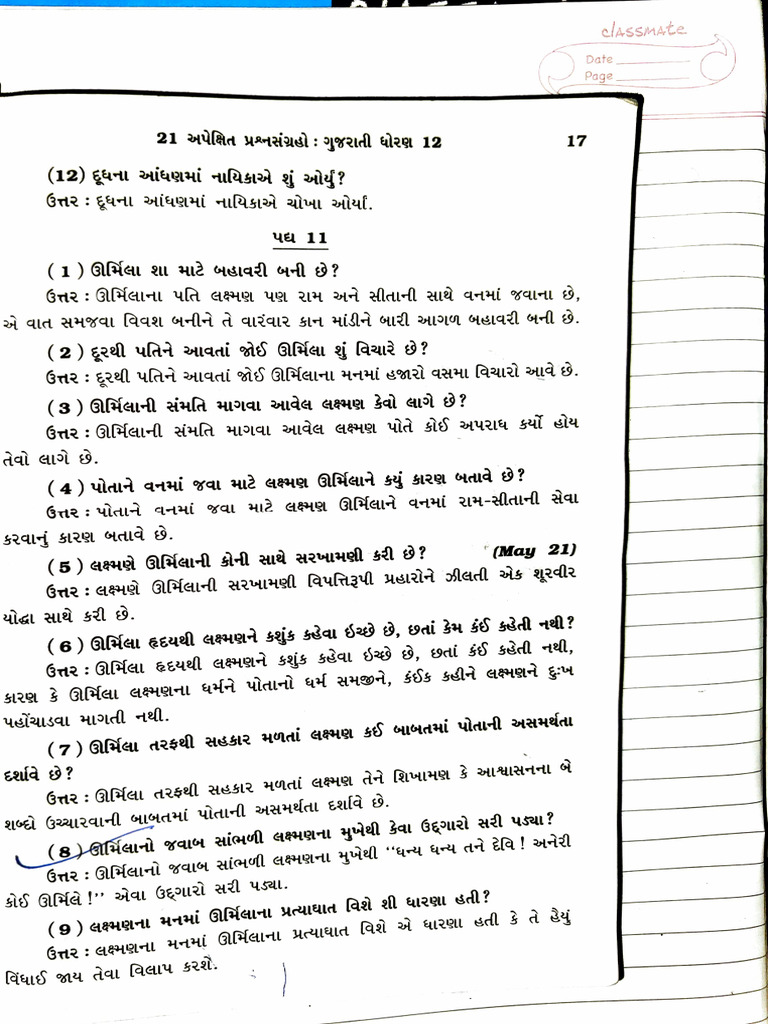 classmate
Date
Page
21 અપેક્ષિત પ્રશ્નસંગ્રહો : ગુજરાતી ધોરણ 12 17
(12) દૂધના આંધણમાં નાયિકાએ શું ઓર્યું?
ઉત્તર : દૂધના આંધણમાં નાયિકાએ ચોખા ઓર્યાં.
પદ્ય 11
( 1 ) ઊર્મિલા શા માટે બહાવરી બની છે?
ઉત્તર : ઊર્મિલાના પતિ લક્ષ્મણ પણ રામ અને સીતાની સાથે વનમાં જવાના છે,
એ વાત સમજવા વિવશ બનીને તે વારંવાર કાન માંડીને બારી આગળ બહાવરી બની છે.
( 2 ) દૂરથી પતિને આવતાં જોઈ ઊર્મિલા શું વિચારે છે?
ઉત્તર : દૂરથી પતિને આવતાં જોઈ ઊર્મિલાના મનમાં હજારો વસમા વિચારો આવે છે.
( 3 ) ઊર્મિલાની સંમતિ માગવા આવેલ લક્ષ્મણ કેવો લાગે છે?
ઉત્તર : ઊર્મિલાની સંમતિ માગવા આવેલ લક્ષ્મણ પોતે કોઈ અપરાધ કર્યો હોય
તેવો લાગે છે.
( 4 ) પોતાને વનમાં જવા માટે લક્ષ્મણ ઊર્મિલાને કયું કારણ બતાવે છે?
ઉત્તર : પોતાને વનમાં જવા માટે લક્ષ્મણ ઊર્મિલાને વનમાં રામ-સીતાની સેવા
કરવાનું કારણ બતાવે છે.
( 5 ) લક્ષ્મણે ઊર્મિલાની કોની સાથે સરખામણી કરી છે? (May 21)
ઉત્તર : લક્ષ્મણે ઊર્મિલાની સરખામણી વિપત્તિરૂપી પ્રહારોને ઝીલતી એક શૂરવીર
યોદ્ધા સાથે કરી છે.
( 6 ) ઊર્મિલા હૃદયથી લક્ષ્મણને કશુંક કહેવા ઇચ્છે છે, છતાં કેમ કંઈ કહેતી નથી?
ઉત્તર : ઊર્મિલા હૃદયથી લક્ષ્મણને કશુંક કહેવા ઇચ્છે છે, છતાં કંઈ કહેતી નથી,
કારણ કે ઊર્મિલા લક્ષ્મણના ધર્મને પોતાનો ધર્મ સમજીને, કંઈક કહીને લક્ષ્મણને દુઃખ
પહોંચાડવા માગતી નથી.
( 7 ) ઊર્મિલા તરફથી સહકાર મળતાં લક્ષ્મણ કઈ બાબતમાં પોતાની અસમર્થતા
દર્શાવે છે?
ઉત્તર : ઊર્મિલા તરફથી સહકાર મળતાં લક્ષ્મણ તેને શિખામણ કે આશ્વાસનના બે
શબ્દો ઉચ્ચારવાની બાબતમાં પોતાની અસમર્થતા દર્શાવે છે.
( 8 ) ઊર્મિલાનો જવાબ સાંભળી લક્ષ્મણના મુખેથી કેવા ઉદ્ગારો સરી પડ્યા?
ઉત્તર : ઊર્મિલાનો જવાબ સાંભળી લક્ષ્મણના મુખેથી “ધન્ય ધન્ય તને દેવિ! અનેરી
કોઈ ઊર્મિલે!” એવા ઉદ્ગારો સરી પડ્યા.
( 9 ) લક્ષ્મણના મનમાં ઊર્મિલાના પ્રત્યાઘાત વિશે શી ધારણા હતી?
ઉત્તર : લક્ષ્મણના મનમાં ઊર્મિલાના પ્રત્યાઘાત વિશે એ ધારણા હતી કે તે હૈયું
વિંધાઈ જાય તેવા વિલાપ કરશે.